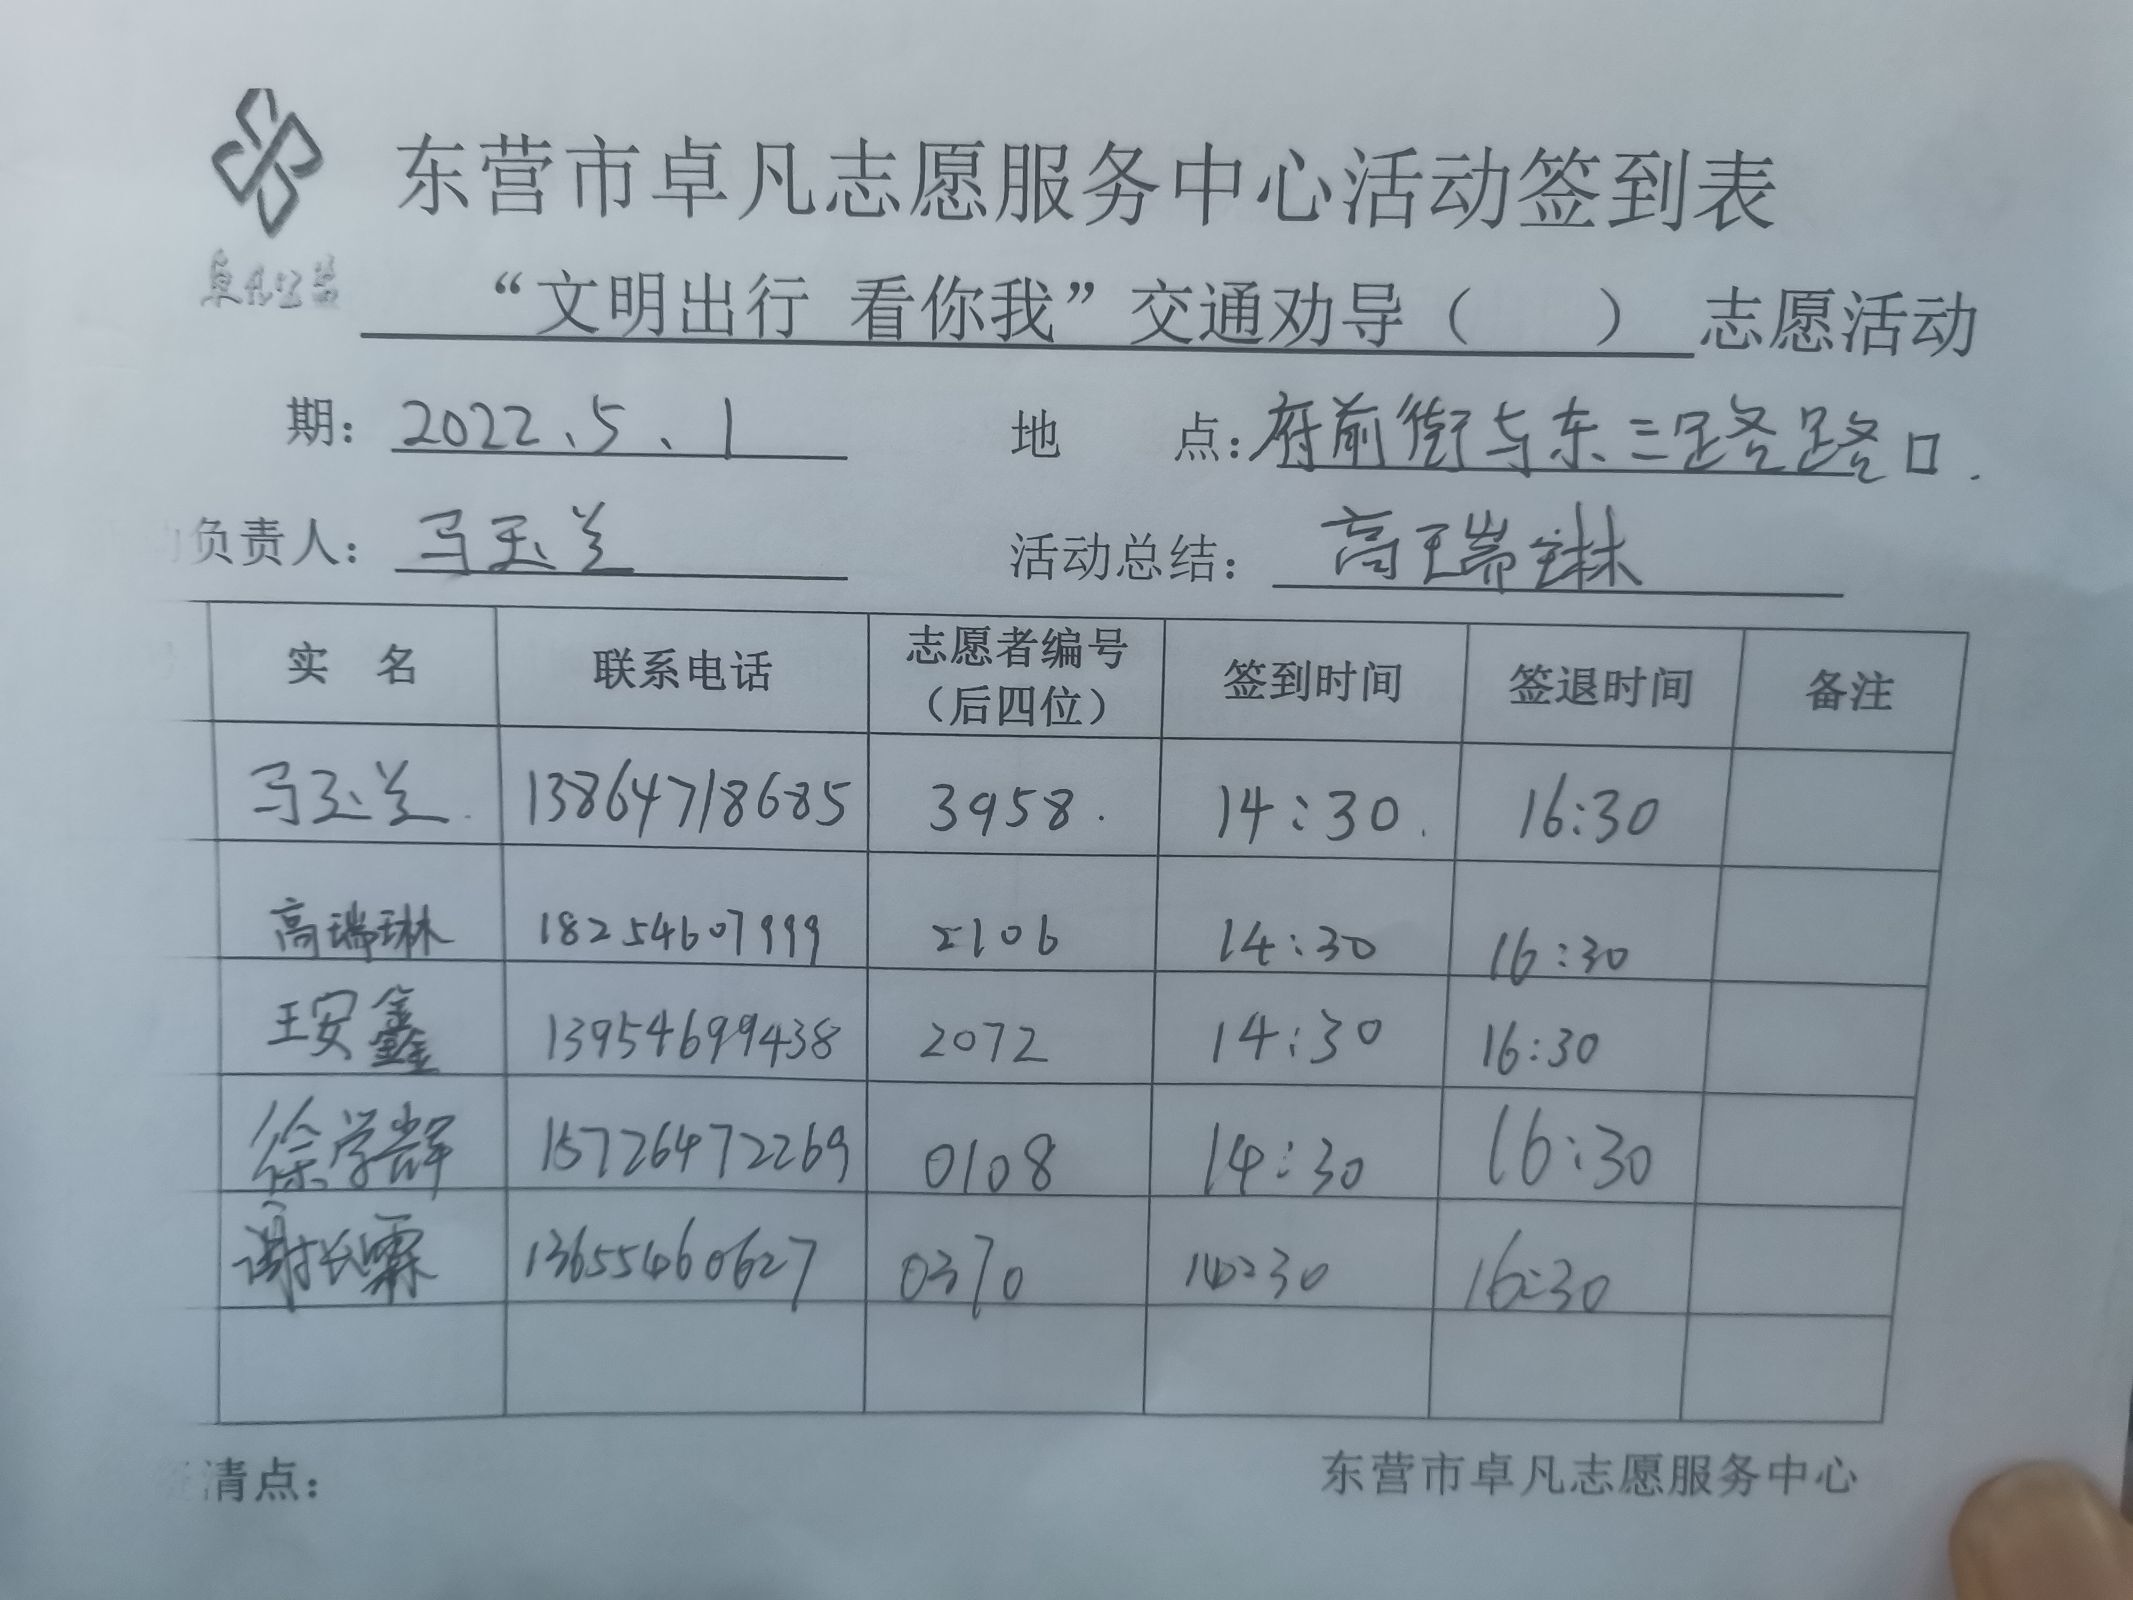 东营市卓凡志愿服务中心活动签到表
卓凡公益
“文明出行 看你我”交通劝导（ ）志愿活动
期：2022、5、1 地 点：府前街与东三路路口.
负责人：马玉兰 活动总结：高瑞琳
实 名 联系电话 志愿者编号（后四位） 签到时间 签退时间 备注
马玉兰. 13864718685 3958. 14:30. 16:30
高瑞琳 18254607999 2106 14:30 16:30
王安鑫 13954699438 2072 14:30 16:30
徐学辉 15726472269 0108 14:30 16:30
谢长霖 13655460627 0370 14:30 16:30
清点： 东营市卓凡志愿服务中心